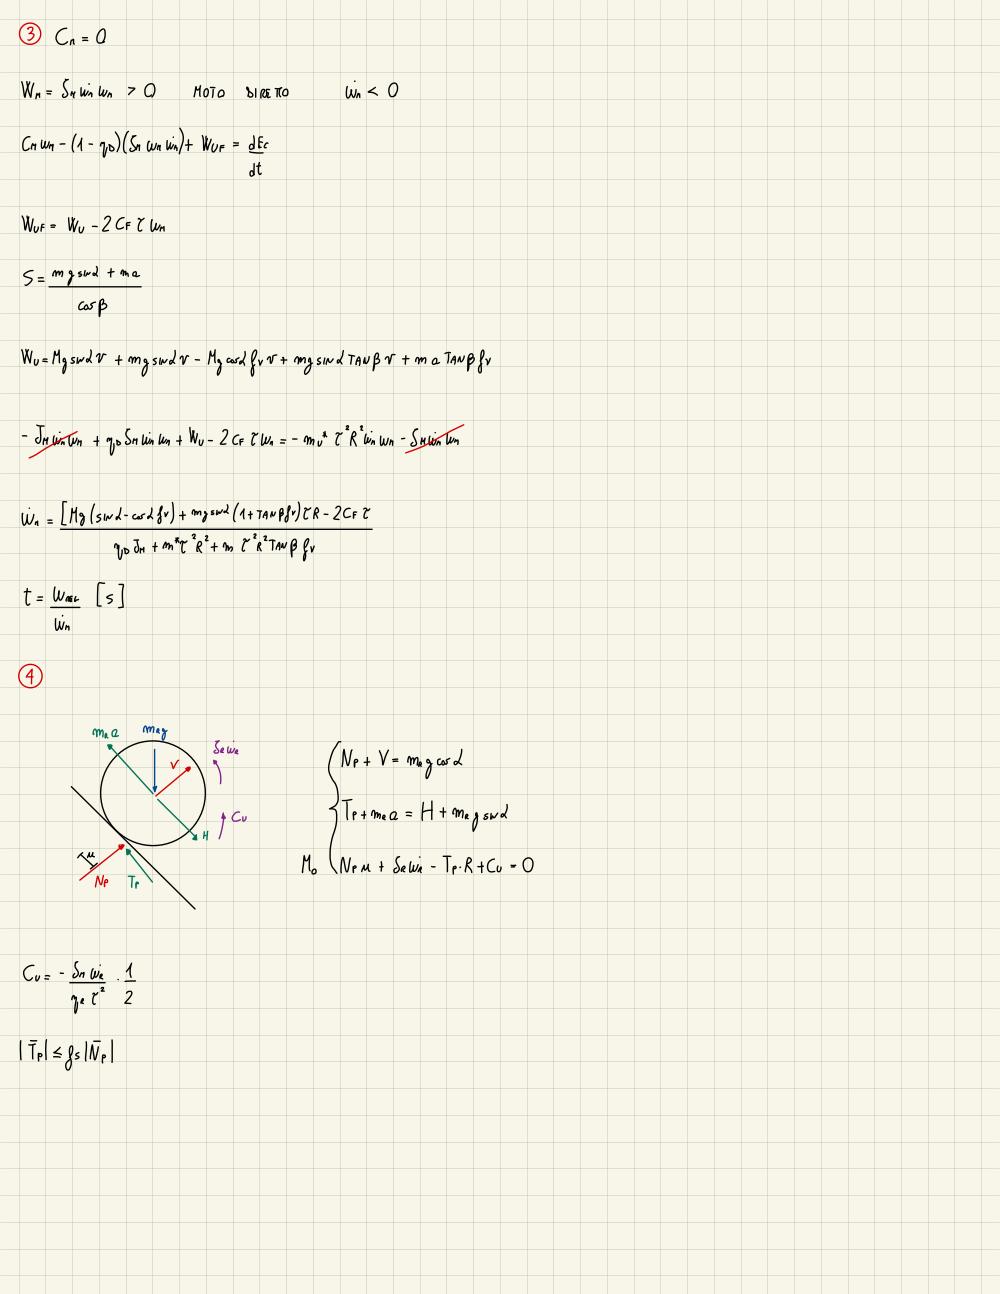 ③ Cₘ = 0
Wₘ = Jₘ ω̇ₘ ωₘ > 0 MOTO DIRETTO ω̇ₘ < 0
Cₘ ωₘ - (1 - ηD)(Jₘ ωₘ ω̇ₘ) + WUF = dEc/dt
WUF = WU - 2 CF τ ωₘ
S = (m g sin α + m a)/cos β
WU = M g sin α v + m g sin α v - M g cos α fv v + m g sin α TAN β v + m a TAN β fv
- Jₘ ω̇ₘ ωₘ + ηD Jₘ ω̇ₘ ωₘ + WU - 2 CF τ ωₘ = - mU* τ² R² ω̇ₘ ωₘ - Jₘ ω̇ₘ ωₘ
ω̇ₘ = [M g (sin α - cos α fv) + m g sin α (1 + TAN β fv) τ R - 2 CF τ / ηD Jₘ + m* τ² R² + m τ² R² TAN β fv
t = ω/ω̇ₘ [s]
④
mR a
mR g
JR ω̇R
V
CU
H
u
NP
TP
NP + V = mR g cos α
TP + mR a = H + mR g sin α
M₀ NP u + JR ω̇R - TP · R + CU = 0
CU = - Jₘ ω̇R/ηR τ² · 1/2
|T̄P| ≤ fs |N̄P|